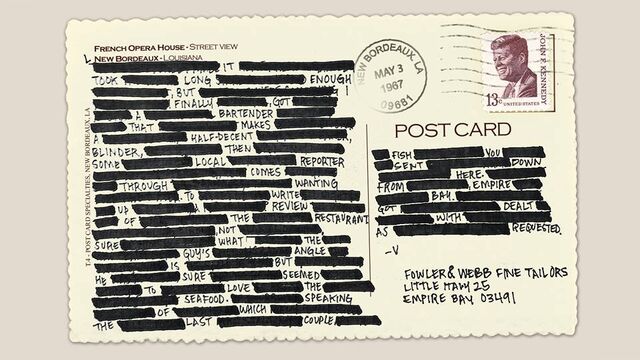 FRENCH OPERA HOUSE - STREET VIEW
NEW BORDEAUX - LOUISIANA
IT
TOOK LONG ENOUGH
, BUT I
FINALLY , GOT
A BARTENDER
THAT MAKES
A HALF-DECENT ,
BLINDER, THEN
SOME LOCAL REPORTER
COMES
THROUGH WANTING
TO WRITE
UP A REVIEW
OF THE RESTAURANT
, NOT
SURE WHAT THE
GUY'S ANGLE
IS BUT
HE SURE SEEMED
TO LOVE THE
SEAFOOD. SPEAKING
OF WHICH
THE LAST COUPLE
T4 - POST CARD SPECIALTIES, NEW BORDEAUX, LA
NEW BORDEAUX, LA
MAY 3
1967
JOHN F. KENNEDY
13c UNITED STATES
POST CARD
FISH YOU
SENT DOWN
HERE.
FROM EMPIRE
BAY.
GOT DEALT
WITH
AS REQUESTED.
-V
FOWLER & WEBB FINE TAILORS
LITTLE ITALY 25
EMPIRE BAY 03491